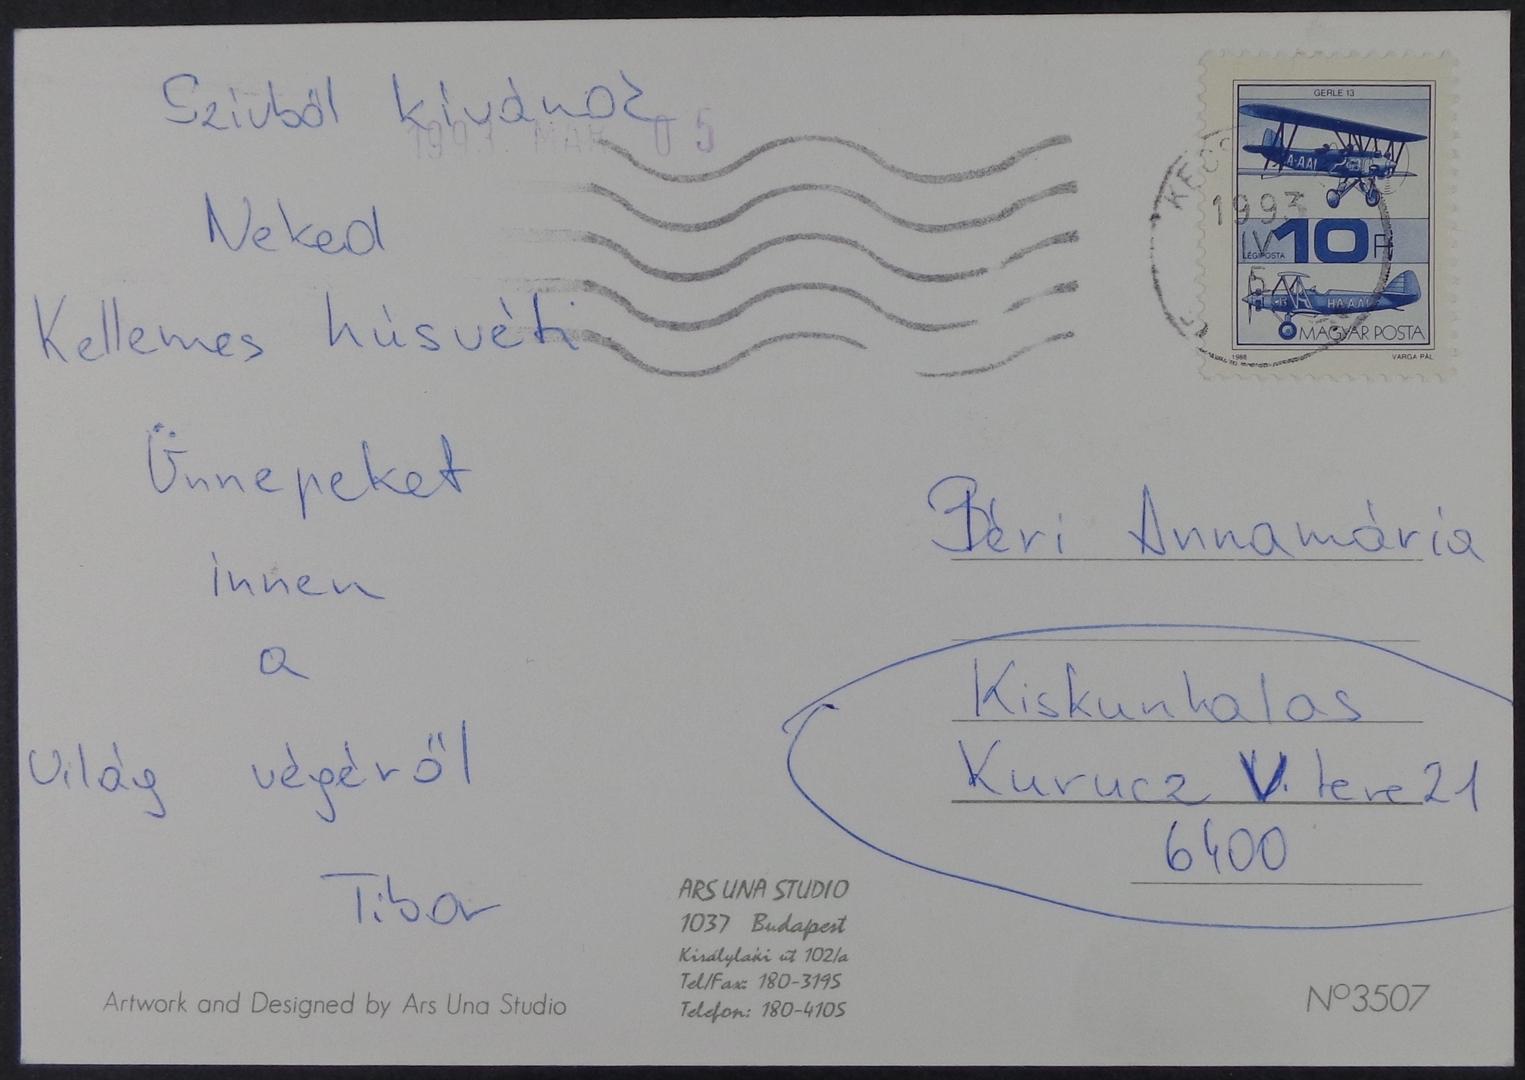 Szívből kívánok
1993 MAR 05
Neked
Kellemes húsvéti
Ünnepeket
innen
a
Világ végéről
Tibor
GERLE 13
1993
IV
5
10 Ft
LÉGIPOSTA
HA-AAI
MAGYAR POSTA
1988
VARGA PÁL
Péri Annamária
Kiskunhalas
Kurucz V. tere 21
6400
ARS UNA STUDIO
1037 Budapest
Királylaki út 102/a
Tel/Fax: 180-3195
Telefon: 180-4105
Artwork and Designed by Ars Una Studio
Nº3507